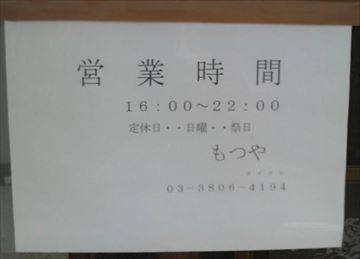 営業時間
16:00～22:00
定休日・・日曜・・祭日
もつや
03-3806-4194